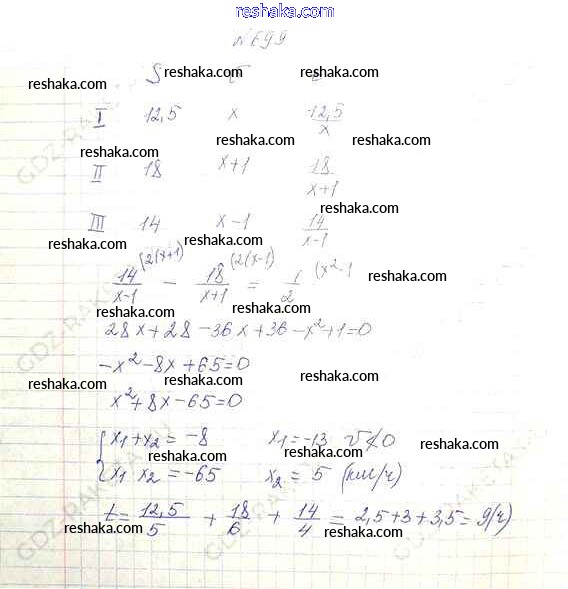 reshaka.com
№699
S reshaka.com reshaka.com
reshaka.com
I 12,5 x 12,5/x
reshaka.com reshaka.com
reshaka.com
II 18 x+1 18/(x+1)
reshaka.com
III 14 x-1 14/(x-1)
reshaka.com reshaka.com
14/(x-1) (2(x+1) - 18/(x+1) (2(x-1) = 1/2 (x²-1
reshaka.com
reshaka.com reshaka.com
28x+28-36x+36-x²+1=0
-x²-8x+65=0
reshaka.com reshaka.com reshaka.com
x²+8x-65=0
x₁+x₂=-8 x₁=-13 v≮0
reshaka.com
reshaka.com reshaka.com
x₁ x₂=-65 x₂=5 (км/ч)
t=12,5/5+18/6+14/4=2,5+3+3,5=9(ч)
reshaka.com reshaka.com
reshaka.com
GDZ-RAKETA